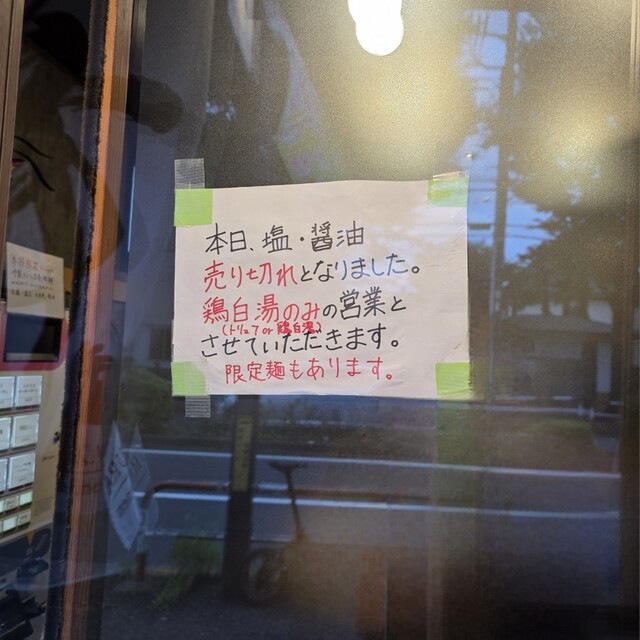 本日、塩・醤油
売り切れとなりました。
鶏白湯のみの営業と
(トリュフor鶏白湯)
させていただきます。
限定麺もあります。